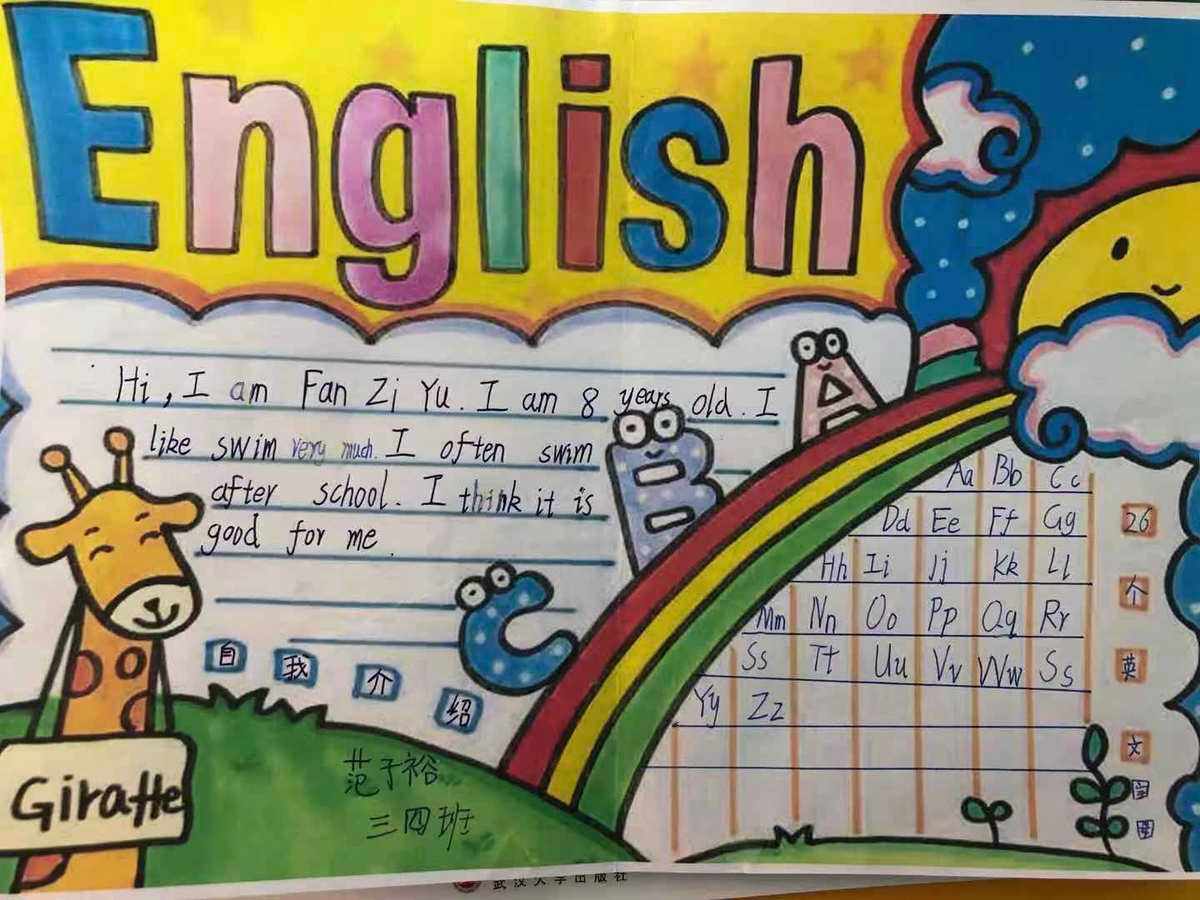 English
Hi, I am Fan Zi Yu. I am 8 years old. I
like swim very much. I often swim
after school. I think it is
good for me.
A
B
C
自我介绍
Giraffe
范于裕
三四班
Aa Bb Cc
Dd Ee Ff Gg
Hh Ii Jj Kk Ll
Mm Nn Oo Pp Qq Rr
Ss Tt Uu Vv Ww Ss
Yy Zz
26个英文字母
武汉大学出版社